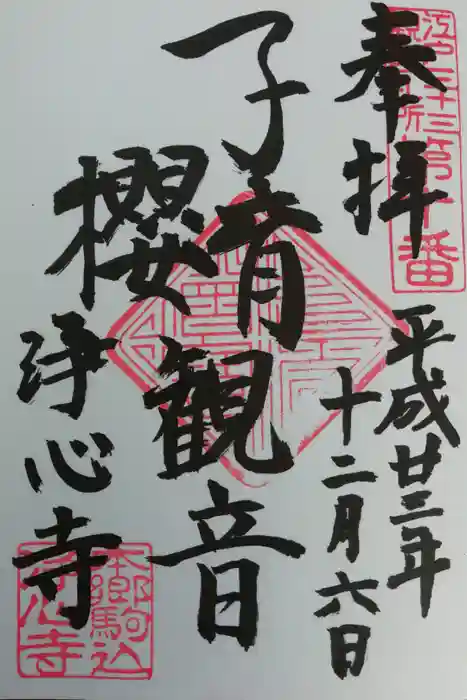 奉拝
平成廿三年
十二月六日
子育観音
櫻
浄心寺
江戸三十三
観音札所
第十番
本郷駒込
浄心寺